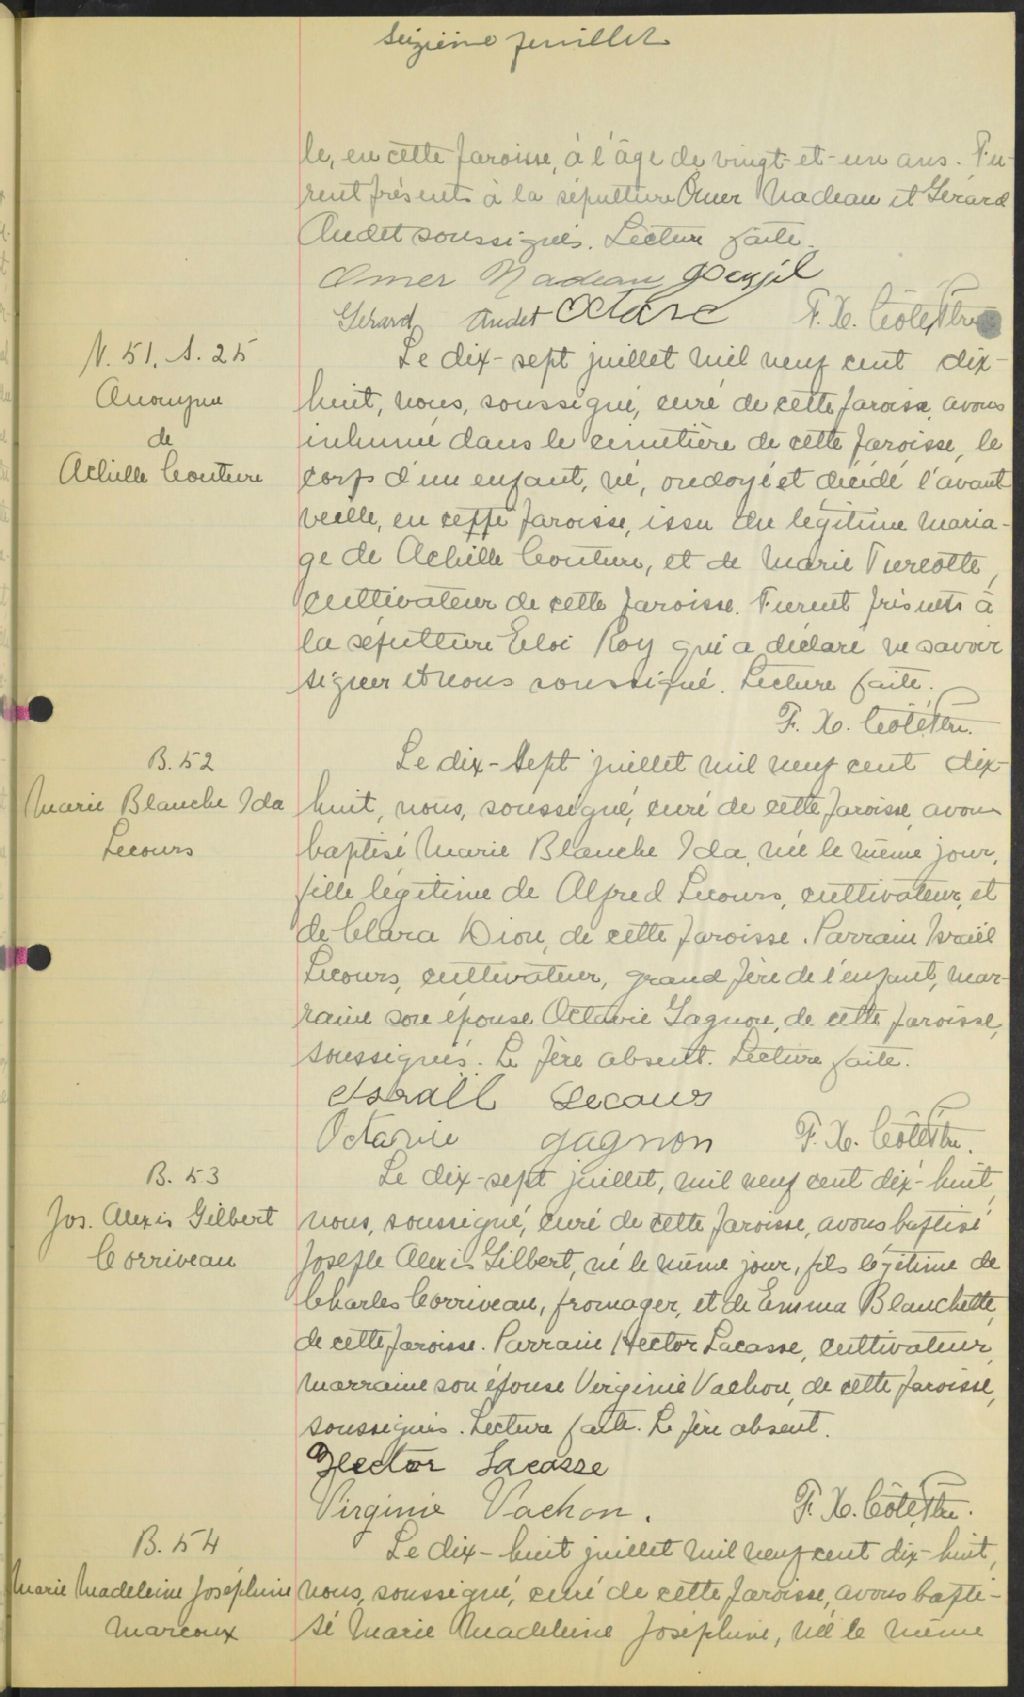 Seizième feuillet
le, en cette paroisse, à l'âge de vingt-et-un ans. Fu-
rent présents à la sépulture Omer Nadeau et Gérard
Audet soussignés. Lecture faite.
Omer Nadeau
Gérard Audet Octave F. X. Côté Ptre
N. 51. S. 25
Anonyme
de
Achille Couture
Le dix-sept juillet mil neuf cent dix-
huit, nous, soussigné, curé de cette paroisse, avons
inhumé dans le cimetière de cette paroisse, le
corps d'un enfant, né, ondoyé et décédé l'avant
veille, en cette paroisse, issu du légitime maria-
ge de Achille Couture, et de Marie Turcotte,
cultivateur de cette paroisse. Furent présents à
la sépulture Eloi Roy qui a déclaré ne savoir
signer et nous soussigné. Lecture faite.
F. X. Côté, Ptre.
B. 52
Marie Blanche Ida
Lecours
Le dix-sept juillet mil neuf cent dix-
huit, nous, soussigné, curé de cette paroisse, avons
baptisé Marie Blanche Ida, née le même jour,
fille légitime de Alfred Lecours, cultivateur, et
de Clara Dion, de cette paroisse. Parrain Israël
Lecours, cultivateur, grand père de l'enfant, mar-
raine son épouse Octavie Gagnon, de cette paroisse,
soussignés. Le père absent. Lecture faite.
Israïl Lecours
Octavie gagnon F. X. Côté Ptre.
B. 53
Jos. Alexis Gilbert
Corriveau
Le dix-sept juillet, mil neuf cent dix-huit,
nous, soussigné, curé de cette paroisse, avons baptisé
Joseph Alexis Gilbert, né le même jour, fils légitime de
Charles Corriveau, fromager, et de Emma Blanchette,
de cette paroisse. Parrain Hector Lacasse, cultivateur,
marraine son épouse Virginie Vachon, de cette paroisse,
soussignés. Lecture faite. Le père absent.
Hector Lacasse
Virginie Vachon. F. X. Côté, Ptre.
B. 54
Marie Madeleine Joséphine
Marcoux
Le dix-huit juillet mil neuf cent dix-huit,
nous, soussigné, curé de cette paroisse, avons bapti-
sé Marie Madeleine Joséphine, née le même